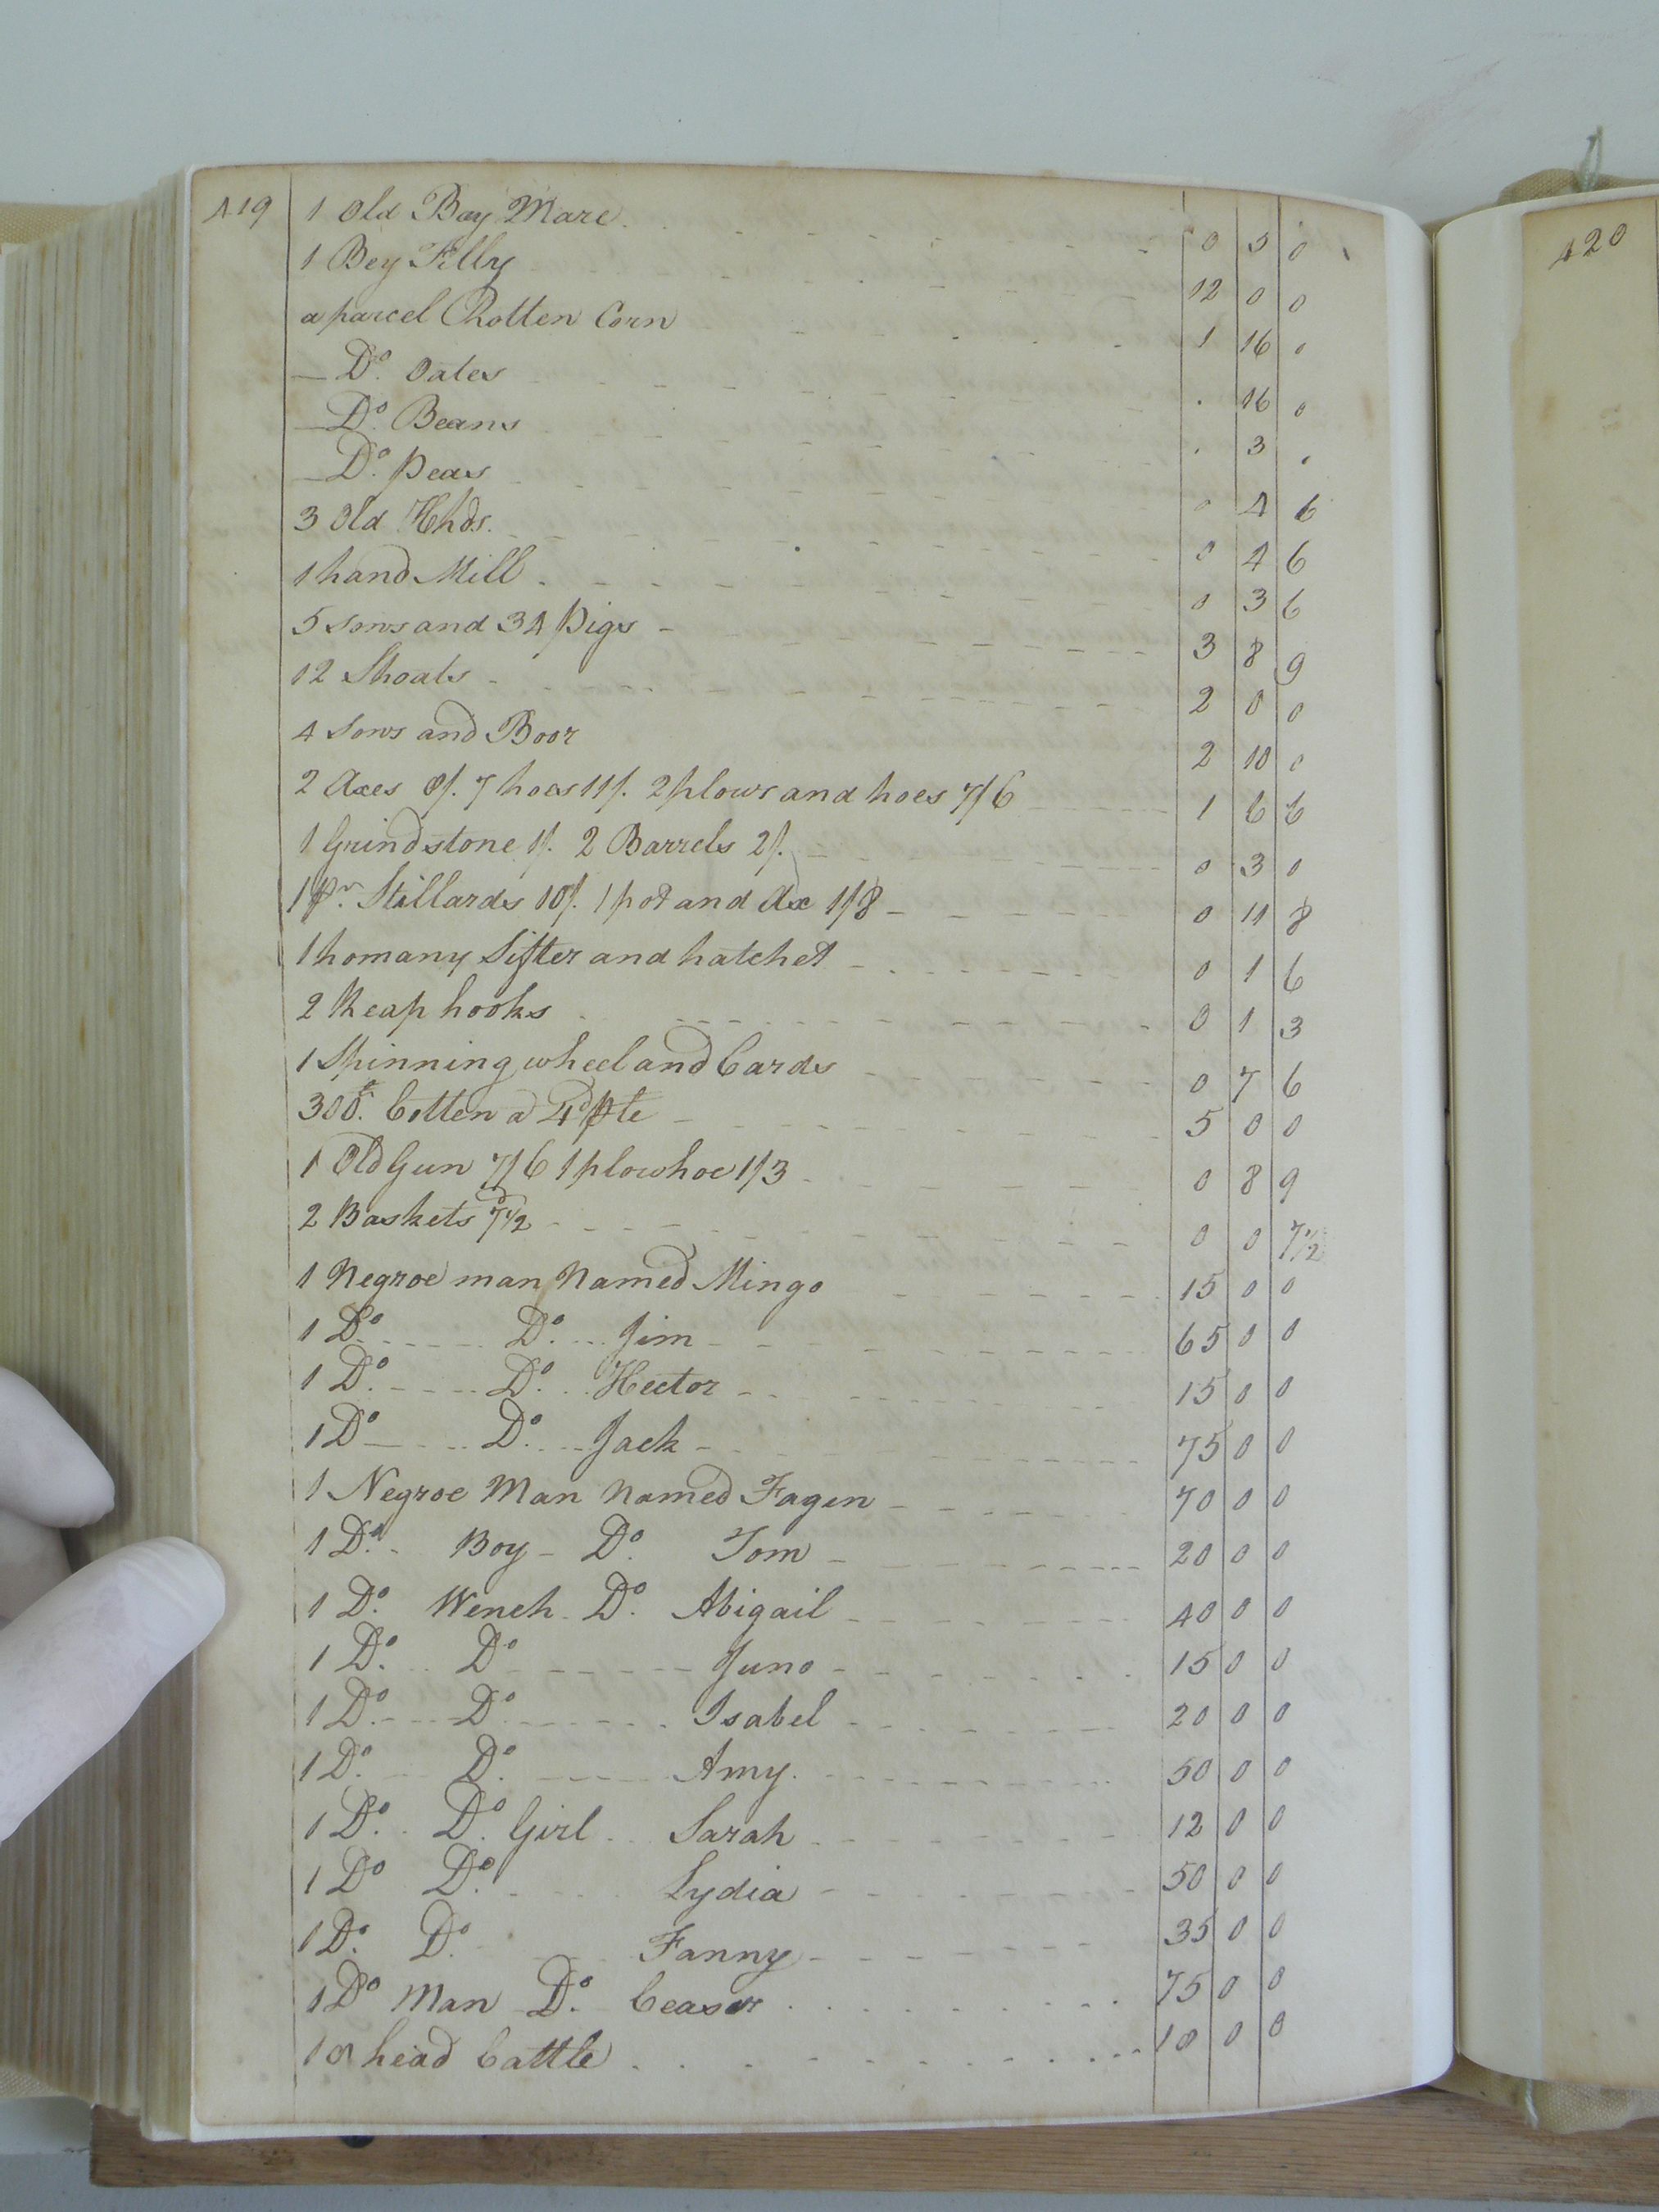 419 1 Old Bay Mare 0 5 0
1 Bey Filly 12 0 0
a parcel Rotten Corn 1 16 0
— Do. Oates . 16 0
— Do. Beans . 3 .
— Do. Peas 0 4 6
3 Old Hhds. 0 4 6
1 hand Mill 0 3 6
5 Sows and 34 Pigs 3 8 9
12 Shoats 2 0 0
4 Sows and Boor 2 10 0
2 Axes 8/. 7 hoes 11/. 2 plows and hoes 7/6 1 6 6
1 Grindstone 1/. 2 Barrels 2/. 0 3 0
1 pr. Stillards 10/. 1 pot and Ax 1/8 0 11 8
1 homany Sifter and hatchet 0 1 6
2 Reap hooks 0 1 3
1 Spinning wheel and Cards 0 7 6
300 lb. Cotten a 4d ℔ lb 5 0 0
1 Old Gun 7/6 1 plowhoe 1/3 0 8 9
2 Baskets 7d 1/2 0 0 7 1/2
1 Negroe man Named Mingo 15 0 0
1 Do. Do. Jim 65 0 0
1 Do. Do. Hector 15 0 0
1 Do Do. Jack 75 0 0
1 Negroe Man Named Fagen 70 0 0
1 Do. Boy Do. Tom 20 0 0
1 Do. Wench Do. Abigail 40 0 0
1 Do. Do Juno 15 0 0
1 Do. Do Isabel 20 0 0
1 Do. Do. Amy. 50 0 0
1 Do. Do. Girl Sarah 12 0 0
1 Do Do. Lydia 50 0 0
1 Do. Do. Fanny 35 0 0
1 Do Man Do. Ceaser 75 0 0
10 head Cattle 10 0 0
420